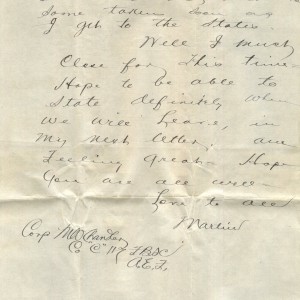 some taken soon as
I get to the States.
Well I must
Close for this time.
Hope to be able to
State definitely when
we will leave, in
my next letter, am
Feeling great. Hope
you are all well
Love to all
Martin
Corp M
Co "C" 117
A.E.F.